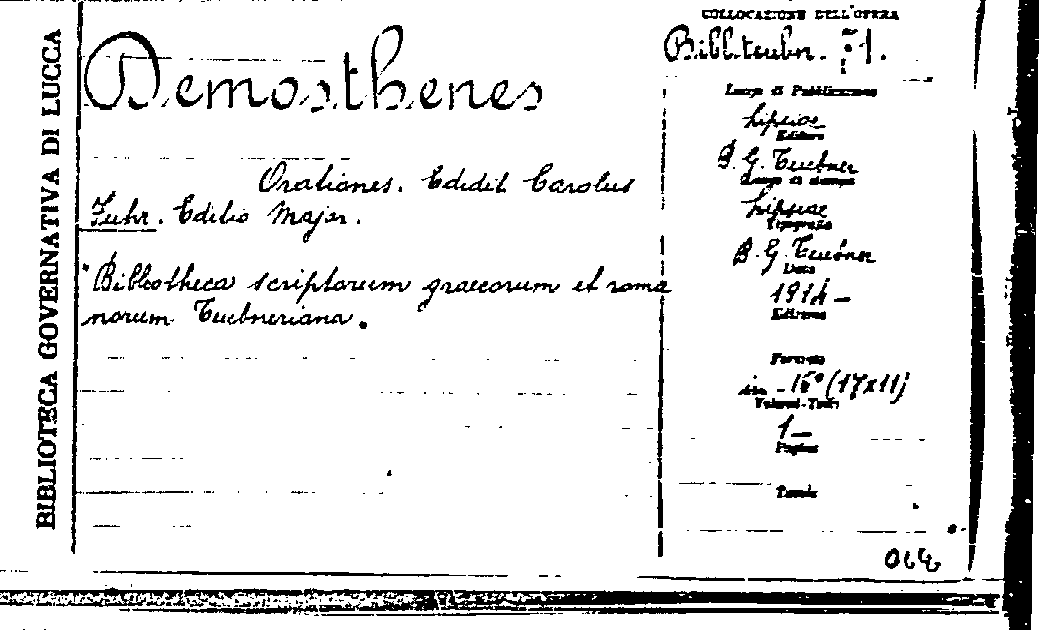 BIBLIOTECA GOVERNATIVA DI LUCCA
Demosthenes
Orationes. Edidit Carolus
Fuhr. Editio Major.
"Bibliotheca scriptorum graecorum et roma
norum Teubneriana.
COLLOCAZIONE DELL'OPERA
Bibl. teubn. 71.
Luogo di Pubblicazione
Lipsiae
Editore
B. G. Teubner
Luogo di stampa
Lipsiae
Tipografia
B. G. Teubner
Data
1914 -
Edizione
Formato
in - 16° (17x11)
Volumi-Tomi
1 -
Pagine
Tavole